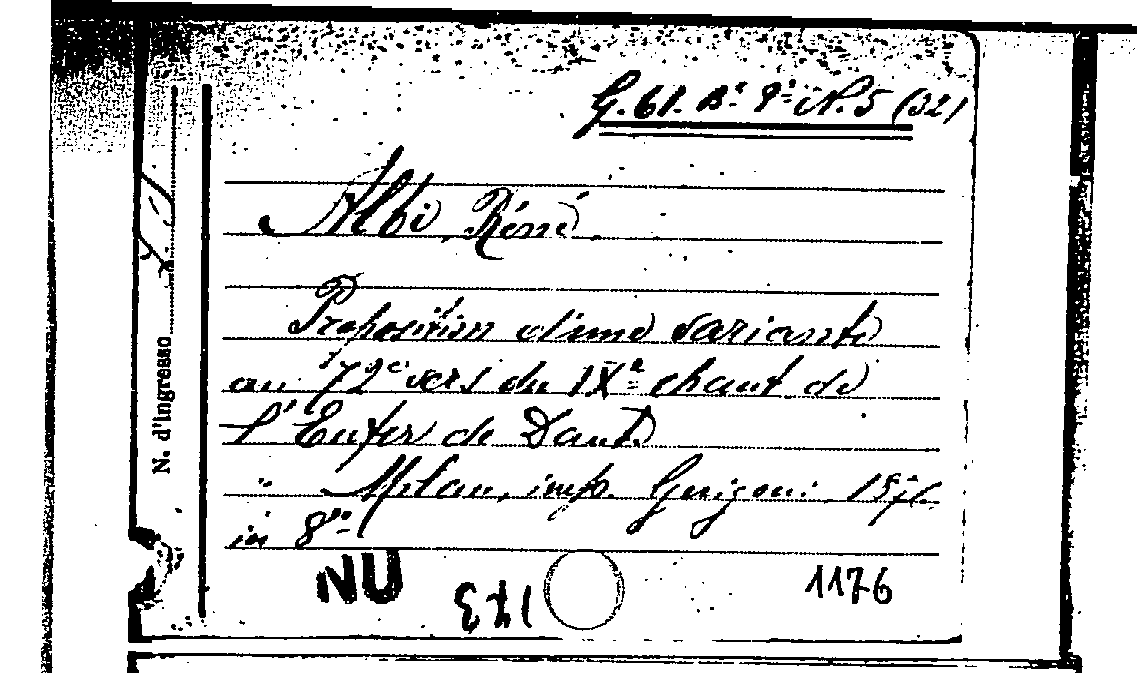 G. 61. Bª 9ª N. 5 (32)
Albi, Réné.
Proposition d'une variante
au 72e vers du IXe chant de
l'Enfer de Dante
" Milan, imp. Guigoni.
in 8vo
NU
173
1176
N. d'ingresso